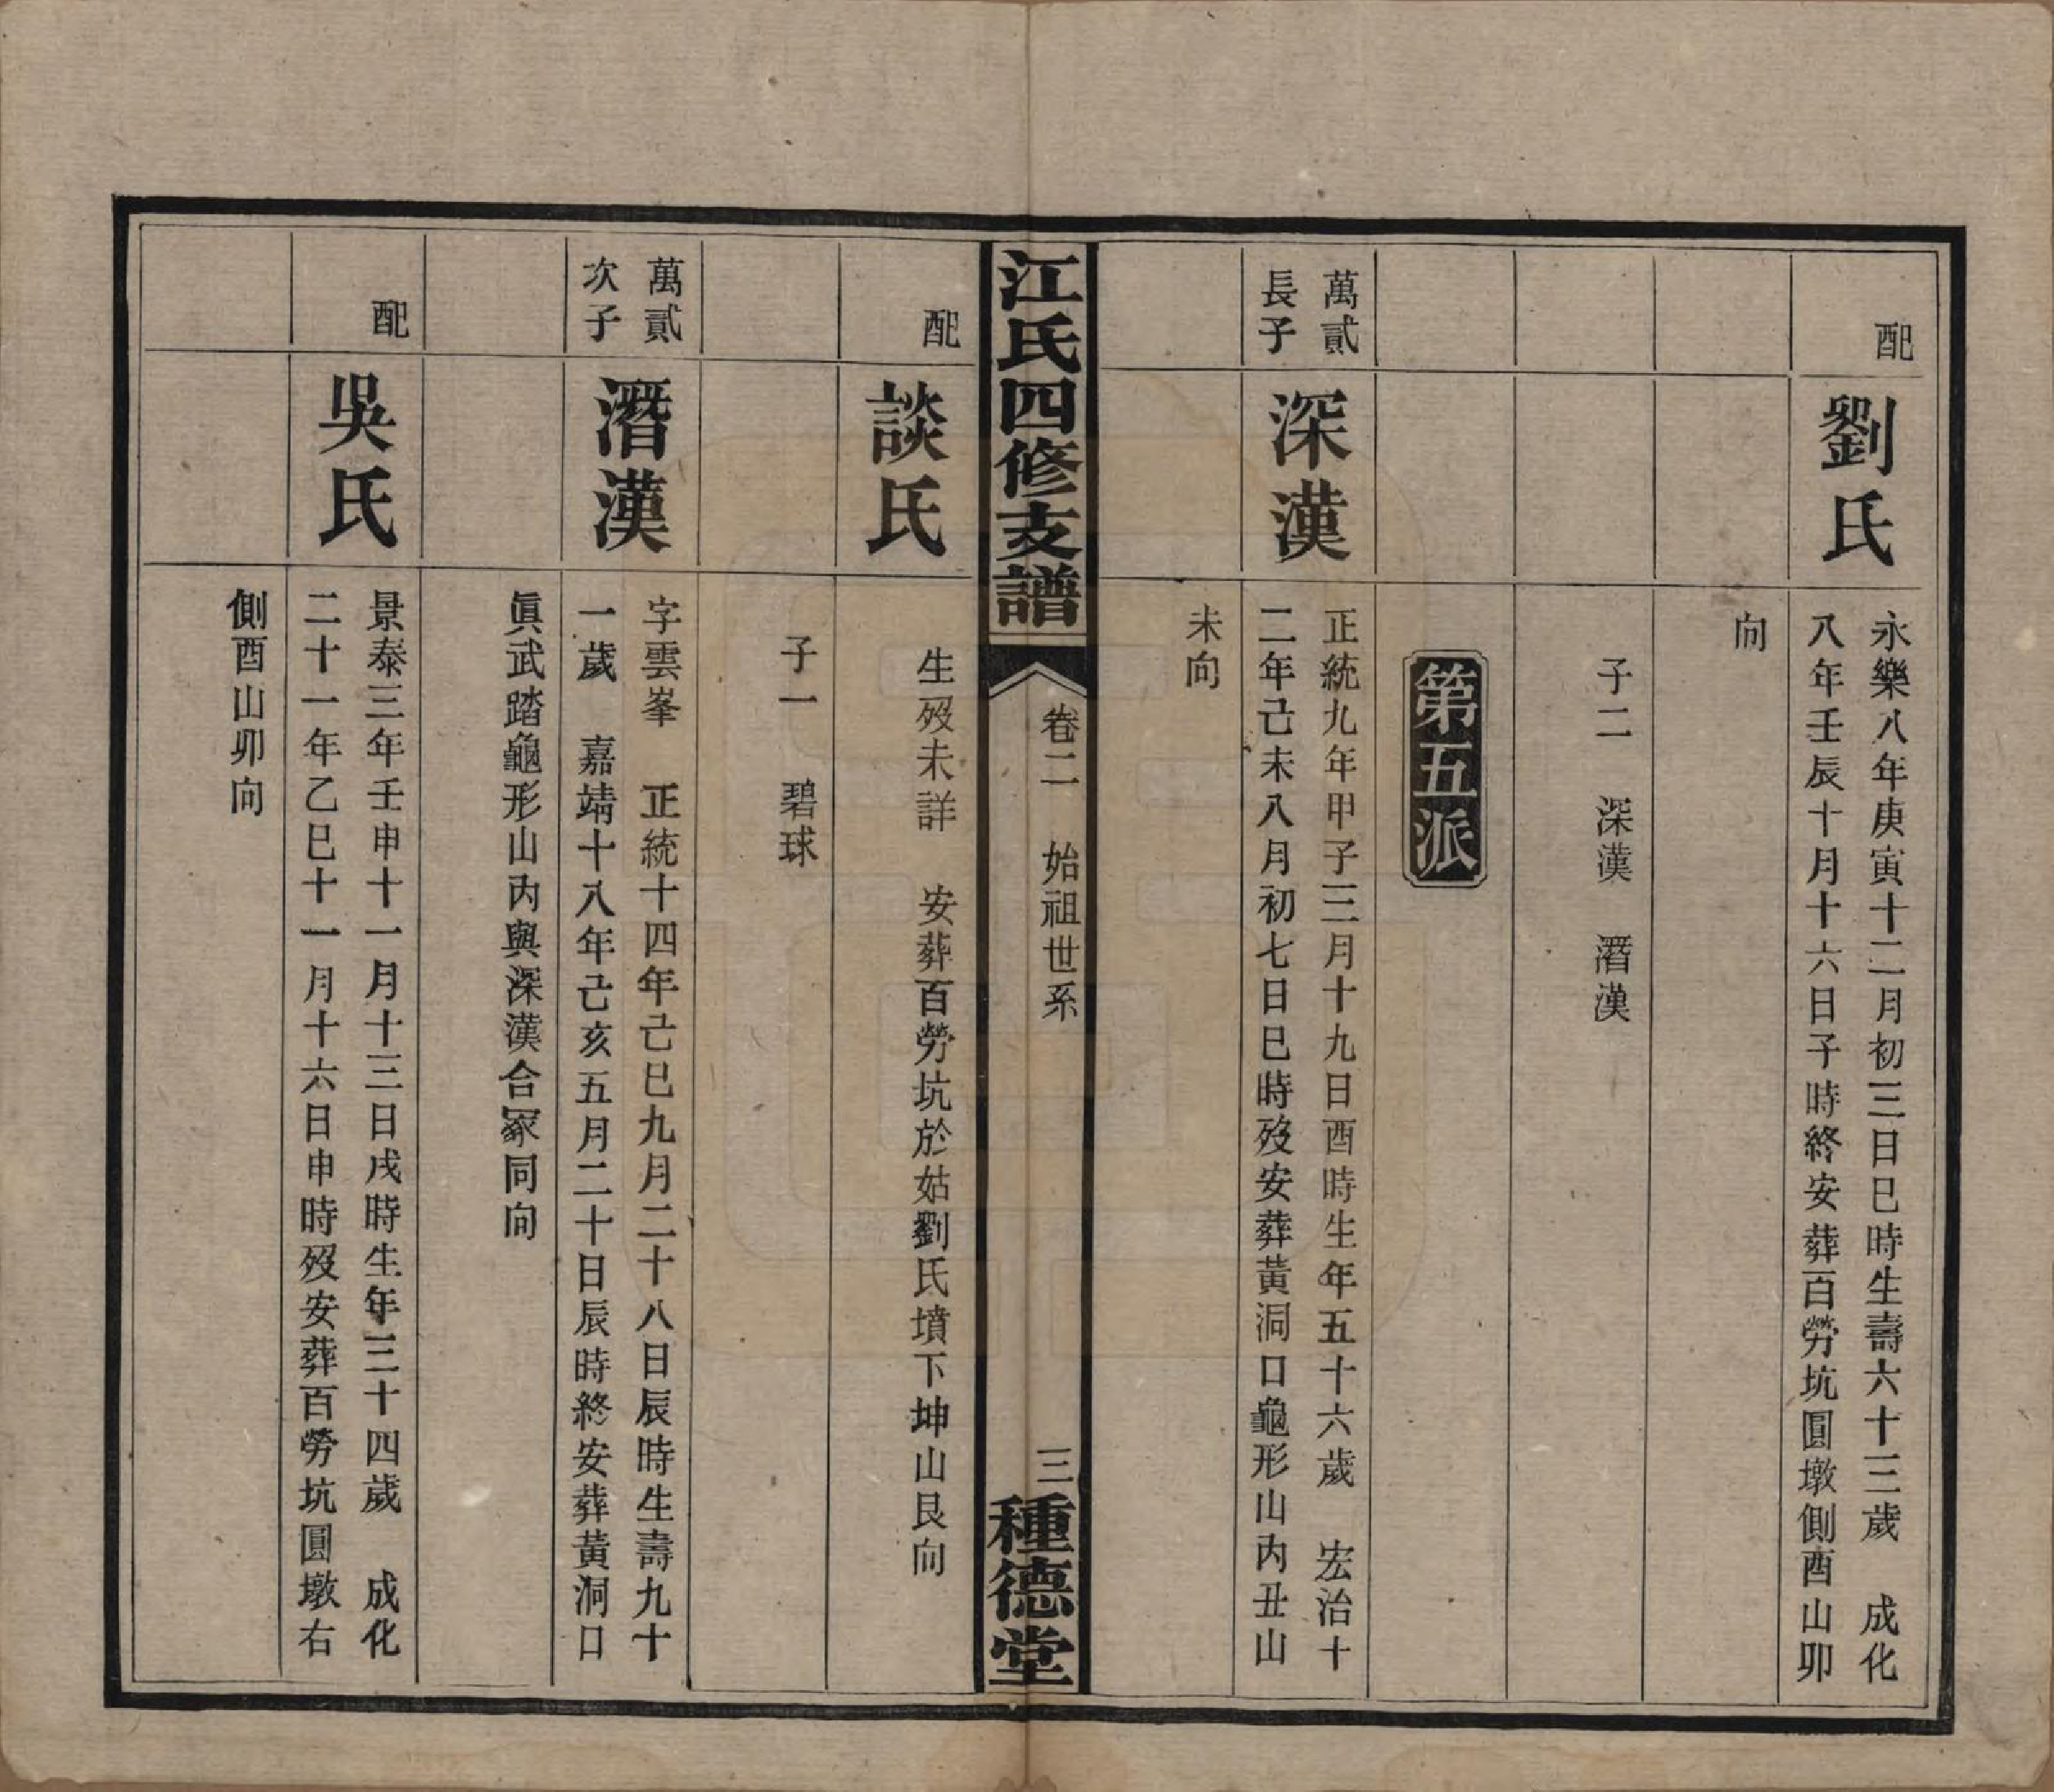 配
劉氏
永樂八年庚寅十二月初三日巳時生壽六十三歲　成化
八年壬辰十月十六日子時終安葬百勞坑圓墩側酉山卯
向
子二　深漢　潛漢
第五派
萬貳
長子
深漢
正統九年甲子三月十九日酉時生年五十六歲　宏治十
二年己未八月初七日巳時歿安葬黃洞口龜形山內丑山
未向
江氏四修支譜
卷二　始祖世系
三
種德堂
配
談氏
生歿未詳　安葬百勞坑於姑劉氏墳下坤山艮向
子一　碧球
萬貳
次子
潛漢
字雲峯　正統十四年己巳九月二十八日辰時生壽九十
一歲　嘉靖十八年己亥五月二十日辰時終安葬黃洞口
眞武踏龜形山內與深漢合冡同向
配
吳氏
景泰三年壬申十一月十三日戌時生年三十四歲　成化
二十一年乙巳十一月十六日申時歿安葬百勞坑圓墩右
側酉山卯向